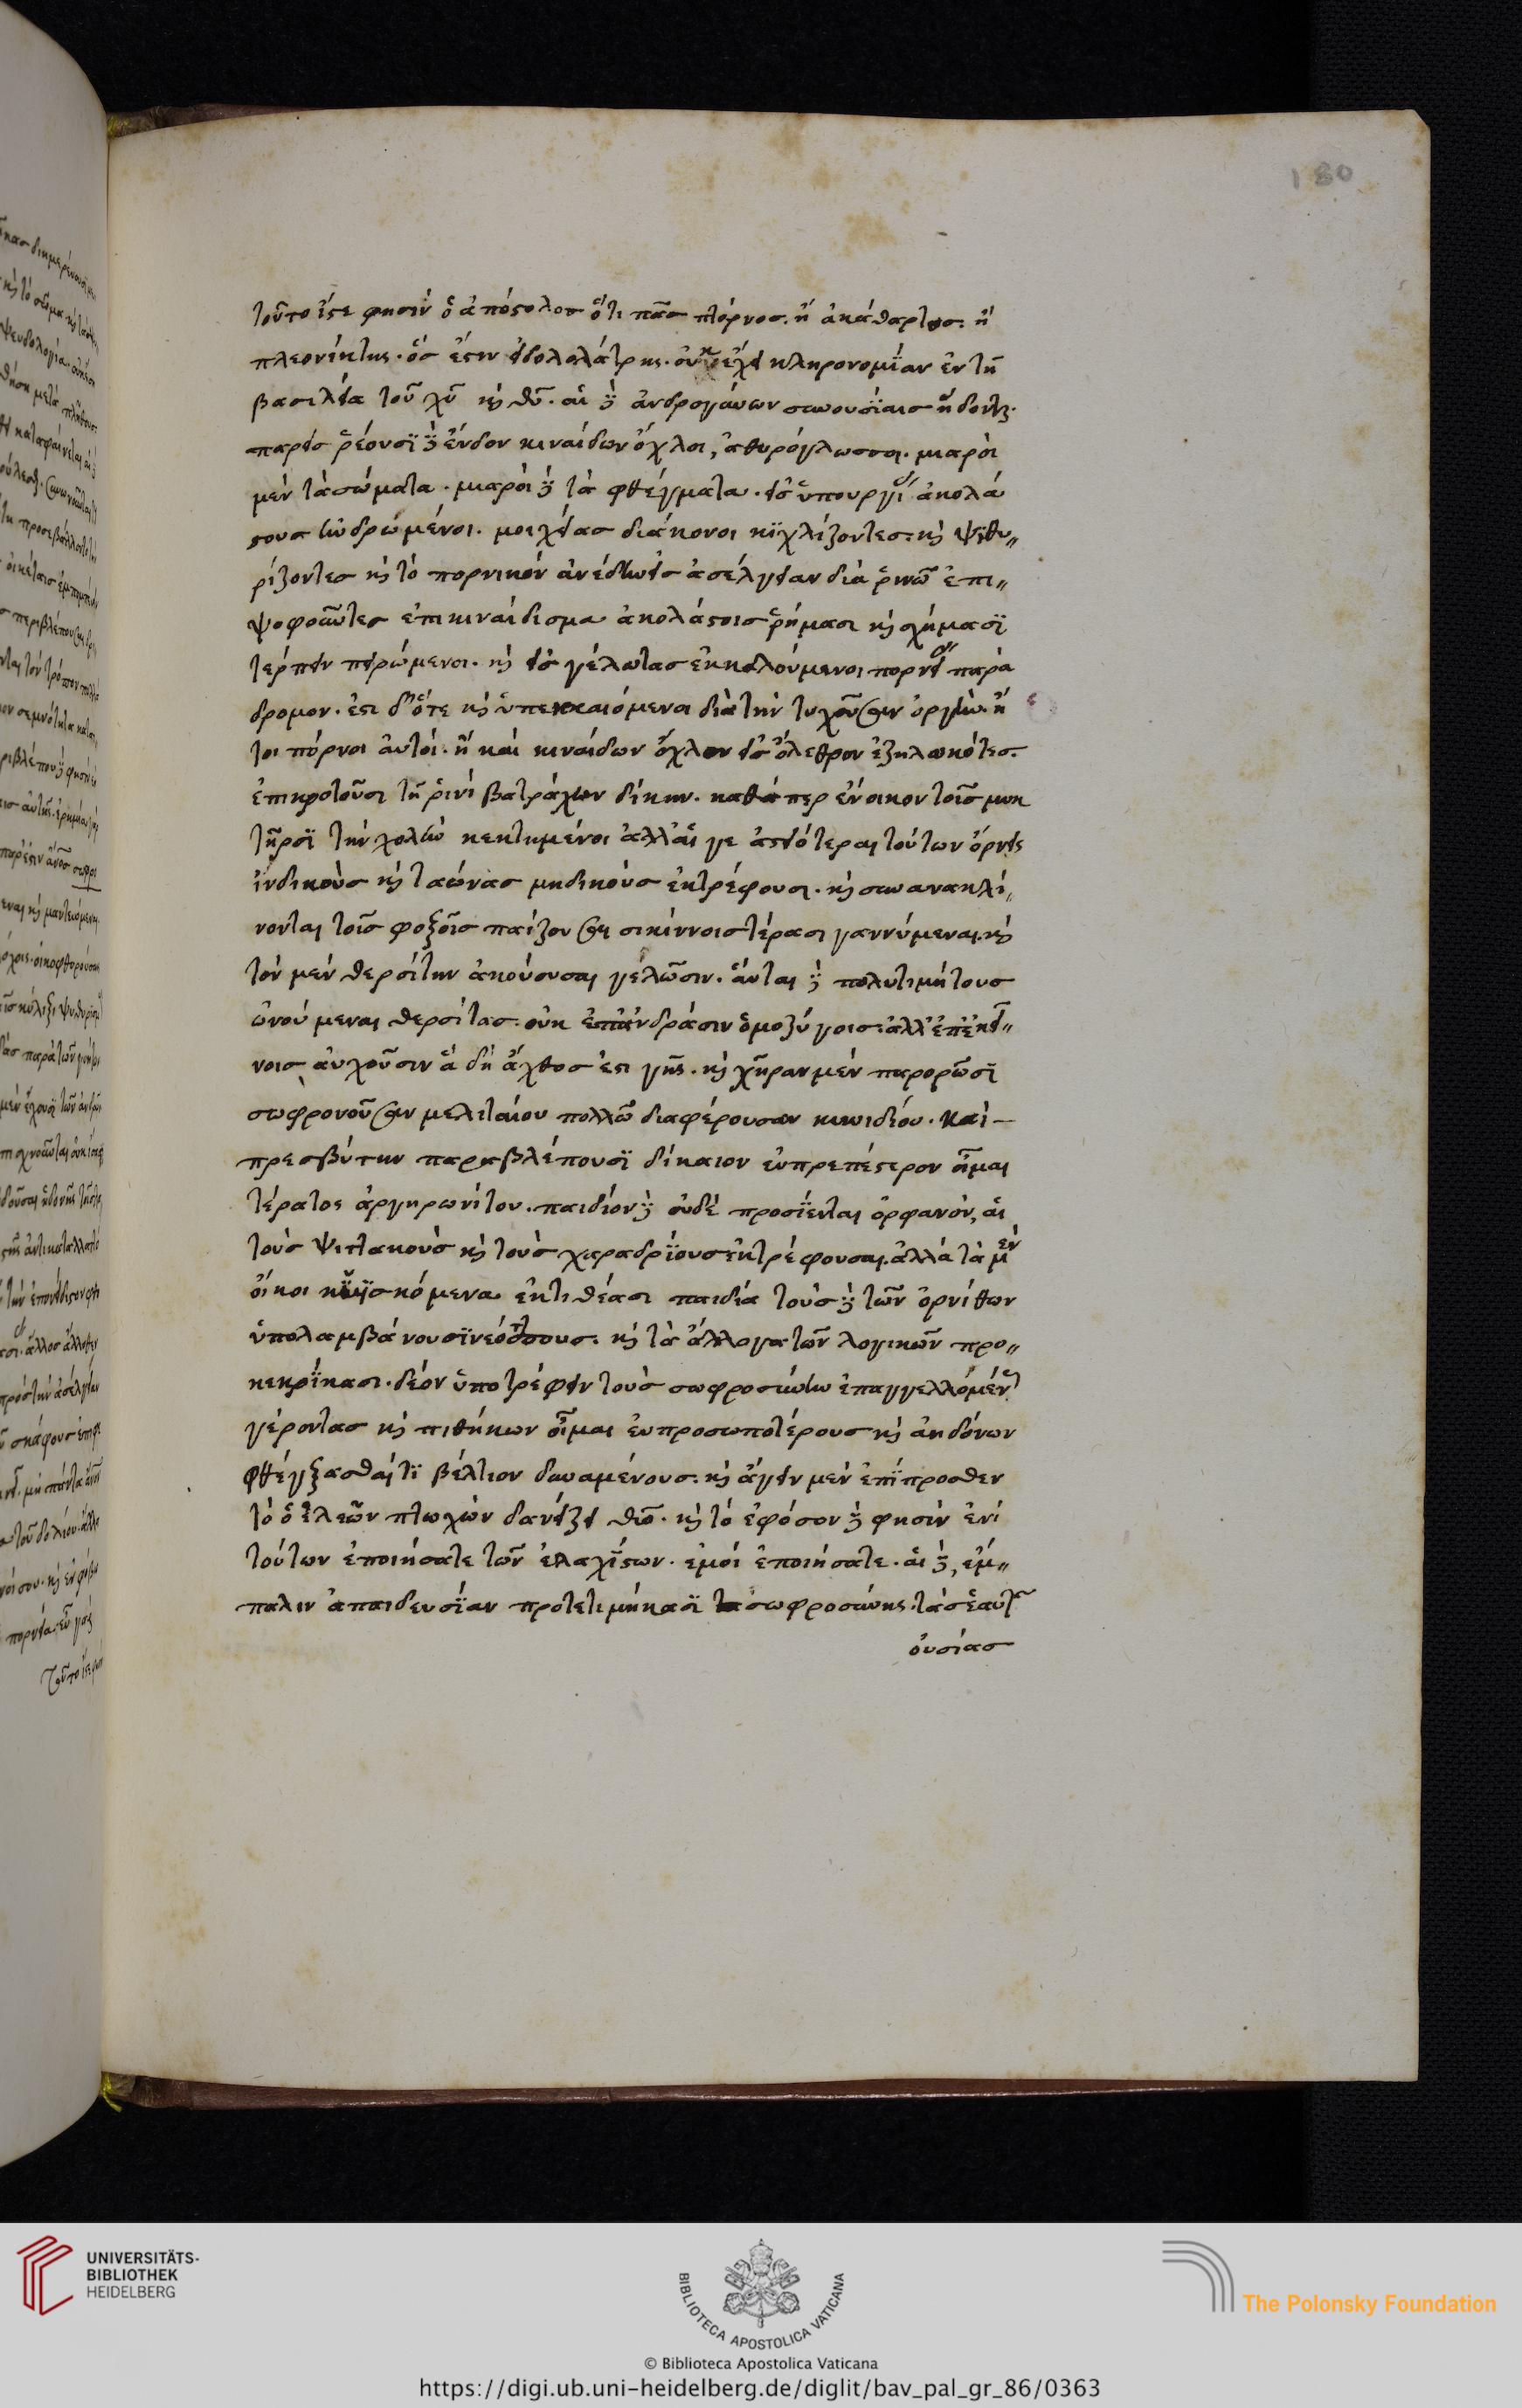 180
τοῦτο ἴστε φησὶν ὁ ἀπόστολος ὅτι πᾶς πόρνος. ἢ ἀκάθαρτος. ἢ
πλεονέκτης. ὅς ἐστιν εἰδολολάτρης. οὐκ ἔχει κληρονομίαν ἐν τῆ
βασιλεία τοῦ χυ κὶ θυ. αἱ δὲ ἀνδρογύνων συνουσΐαις ἥδονται.
παρεισρέουσϊ δὲ ἔνδον κιναίδων ὄχλοι, ἀθυρόγλωσσοι. μιαροὶ
μὲν τὰ σώματα. μιαροὶ δὲ τὰ φθέγματα. εἰς ὑπουργίας ἀκολά
στους ἠνδρωμένοι. μοιχείας διάκονοι κιχλίζοντες. κὶ ψιθυ〃
ρίζοντες κὶ τὸ πορνικὸν ἀνέδην εἰς ἀσέλγειαν διὰ ῥινῶν ἐπι〃
ψοφοῦντες ἐπικιναίδισμα ἀκολάστοις ῥήμασι κὶ σχήμασϊ
τέρπειν πειρώμενοι. κὶ εἰς γέλωτας ἐκκαλούμενοι πορνείας παρά
δρομον. ἔστι δ' ὅτε κὶ ὑπεκκαιόμενοι διὰ τὴν τυχοῦσαν ὀργὴν. ἤ
τοι πόρνοι αὐτοί. ἢ καὶ κιναίδων ὄχλον εἰς ὄλεθρον ἐζηλωκότες.
ἐπικροτοῦσι τῆ ῥινὶ βατράχων δίκην. καθάπερ ἔνοικον τοῖς μυκ
τῆρσϊ τὴν χολὴν κεκτημένοι ἀλλ' αἵ γε ἀστειότεραι τούτων ὄρνεις
ἰνδικοὺς κὶ ταώνας μηδικοὺς ἐκτρέφουσι. κὶ συνανακλί〃
νονται τοῖς φοξοῖς παίζουσαι σικίννοις τέρασι γαννύμεναι. κὶ
τὸν μὲν θερσίτην ἀκούουσαι γελῶσιν. αὗται δὲ πολυτιμήτους
ὠνούμεναι θερσίτας. οὐκ ἐπ' ἀνδράσιν ὁμοζύγοις. ἀλλ' ἐπ' ἐκεί〃
νοις αὐχοῦσιν ἃ δὴ ἄχθος ἐστι γῆς. κὶ χήραν μὲν παρορῶσϊ
σωφρονοῦσαν μελιταίου πολλῶ διαφέρουσαν κυνιδίου. Καὶ —
πρεσβύτην παραβλέπουσϊ δίκαιον εὐπρεπέστερον οἶμαι
τέρατος ἀργυρωνίτου. παιδίον δὲ οὐδὲ προσΐενται ὀρφανόν, αἱ
τοὺς ψιττακοὺς κὶ τοὺς χαραδρϊοὺς ἐκτρέφουσαι. ἀλλὰ τὰ μὲν
οἴκοι κυϊσκόμενα ἐκτιθέασι παιδία τοὺς δὲ τῶν ὀρνίθων
ὑπολαμβάνουσϊ νεοττούς. κὶ τὰ ἄλογα τῶν λογικῶν προ〃
κεκρΐκασι. δέον ὑποτρέφειν τοὺς σωφροσύνην ἐπαγγελλομένους
γέροντας κὶ πιθήκων οἶμαι εὐπροσωποτέρους κὶ ἀηδόνων
φθέγξασθαί τϊ βέλτιον δυναμένους. κὶ ἄγειν μὲν ἐπΐπροσθεν
τὸ ὁ ἐλεῶν πτωχὸν δανείζει θῶ. κὶ τὸ ἐφόσον δὲ φησὶν ἑνὶ
τούτων ἐποιήσατε τῶν ἐλαχΐστων. ἐμοὶ ἐποιήσατε. αἱ δὲ, ἔμ〃
παλιν ἀπαιδευσΐαν προτετιμήκασϊ σωφροσύνης. τὰς ἑαυτῶν
οὐσίας
UNIVERSITÄTS-
BIBLIOTHEK
HEIDELBERG
BIBLIOTECA APOSTOLICA VATICANA
The Polonsky Foundation
© Biblioteca Apostolica Vaticana
https://digi.ub.uni-heidelberg.de/diglit/bav_pal_gr_86/0363